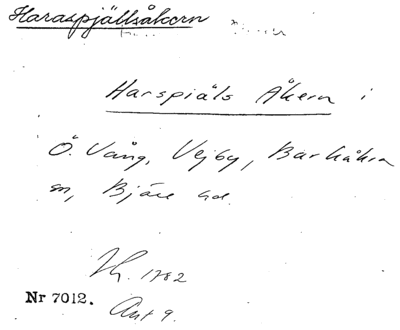 Haraspjällsåkern
Harspiäls Åkern i
Ö. Vång, Vejby, Barkåkra
sn, Bjäre hd.
1782
Nr 7012. Akt 9.